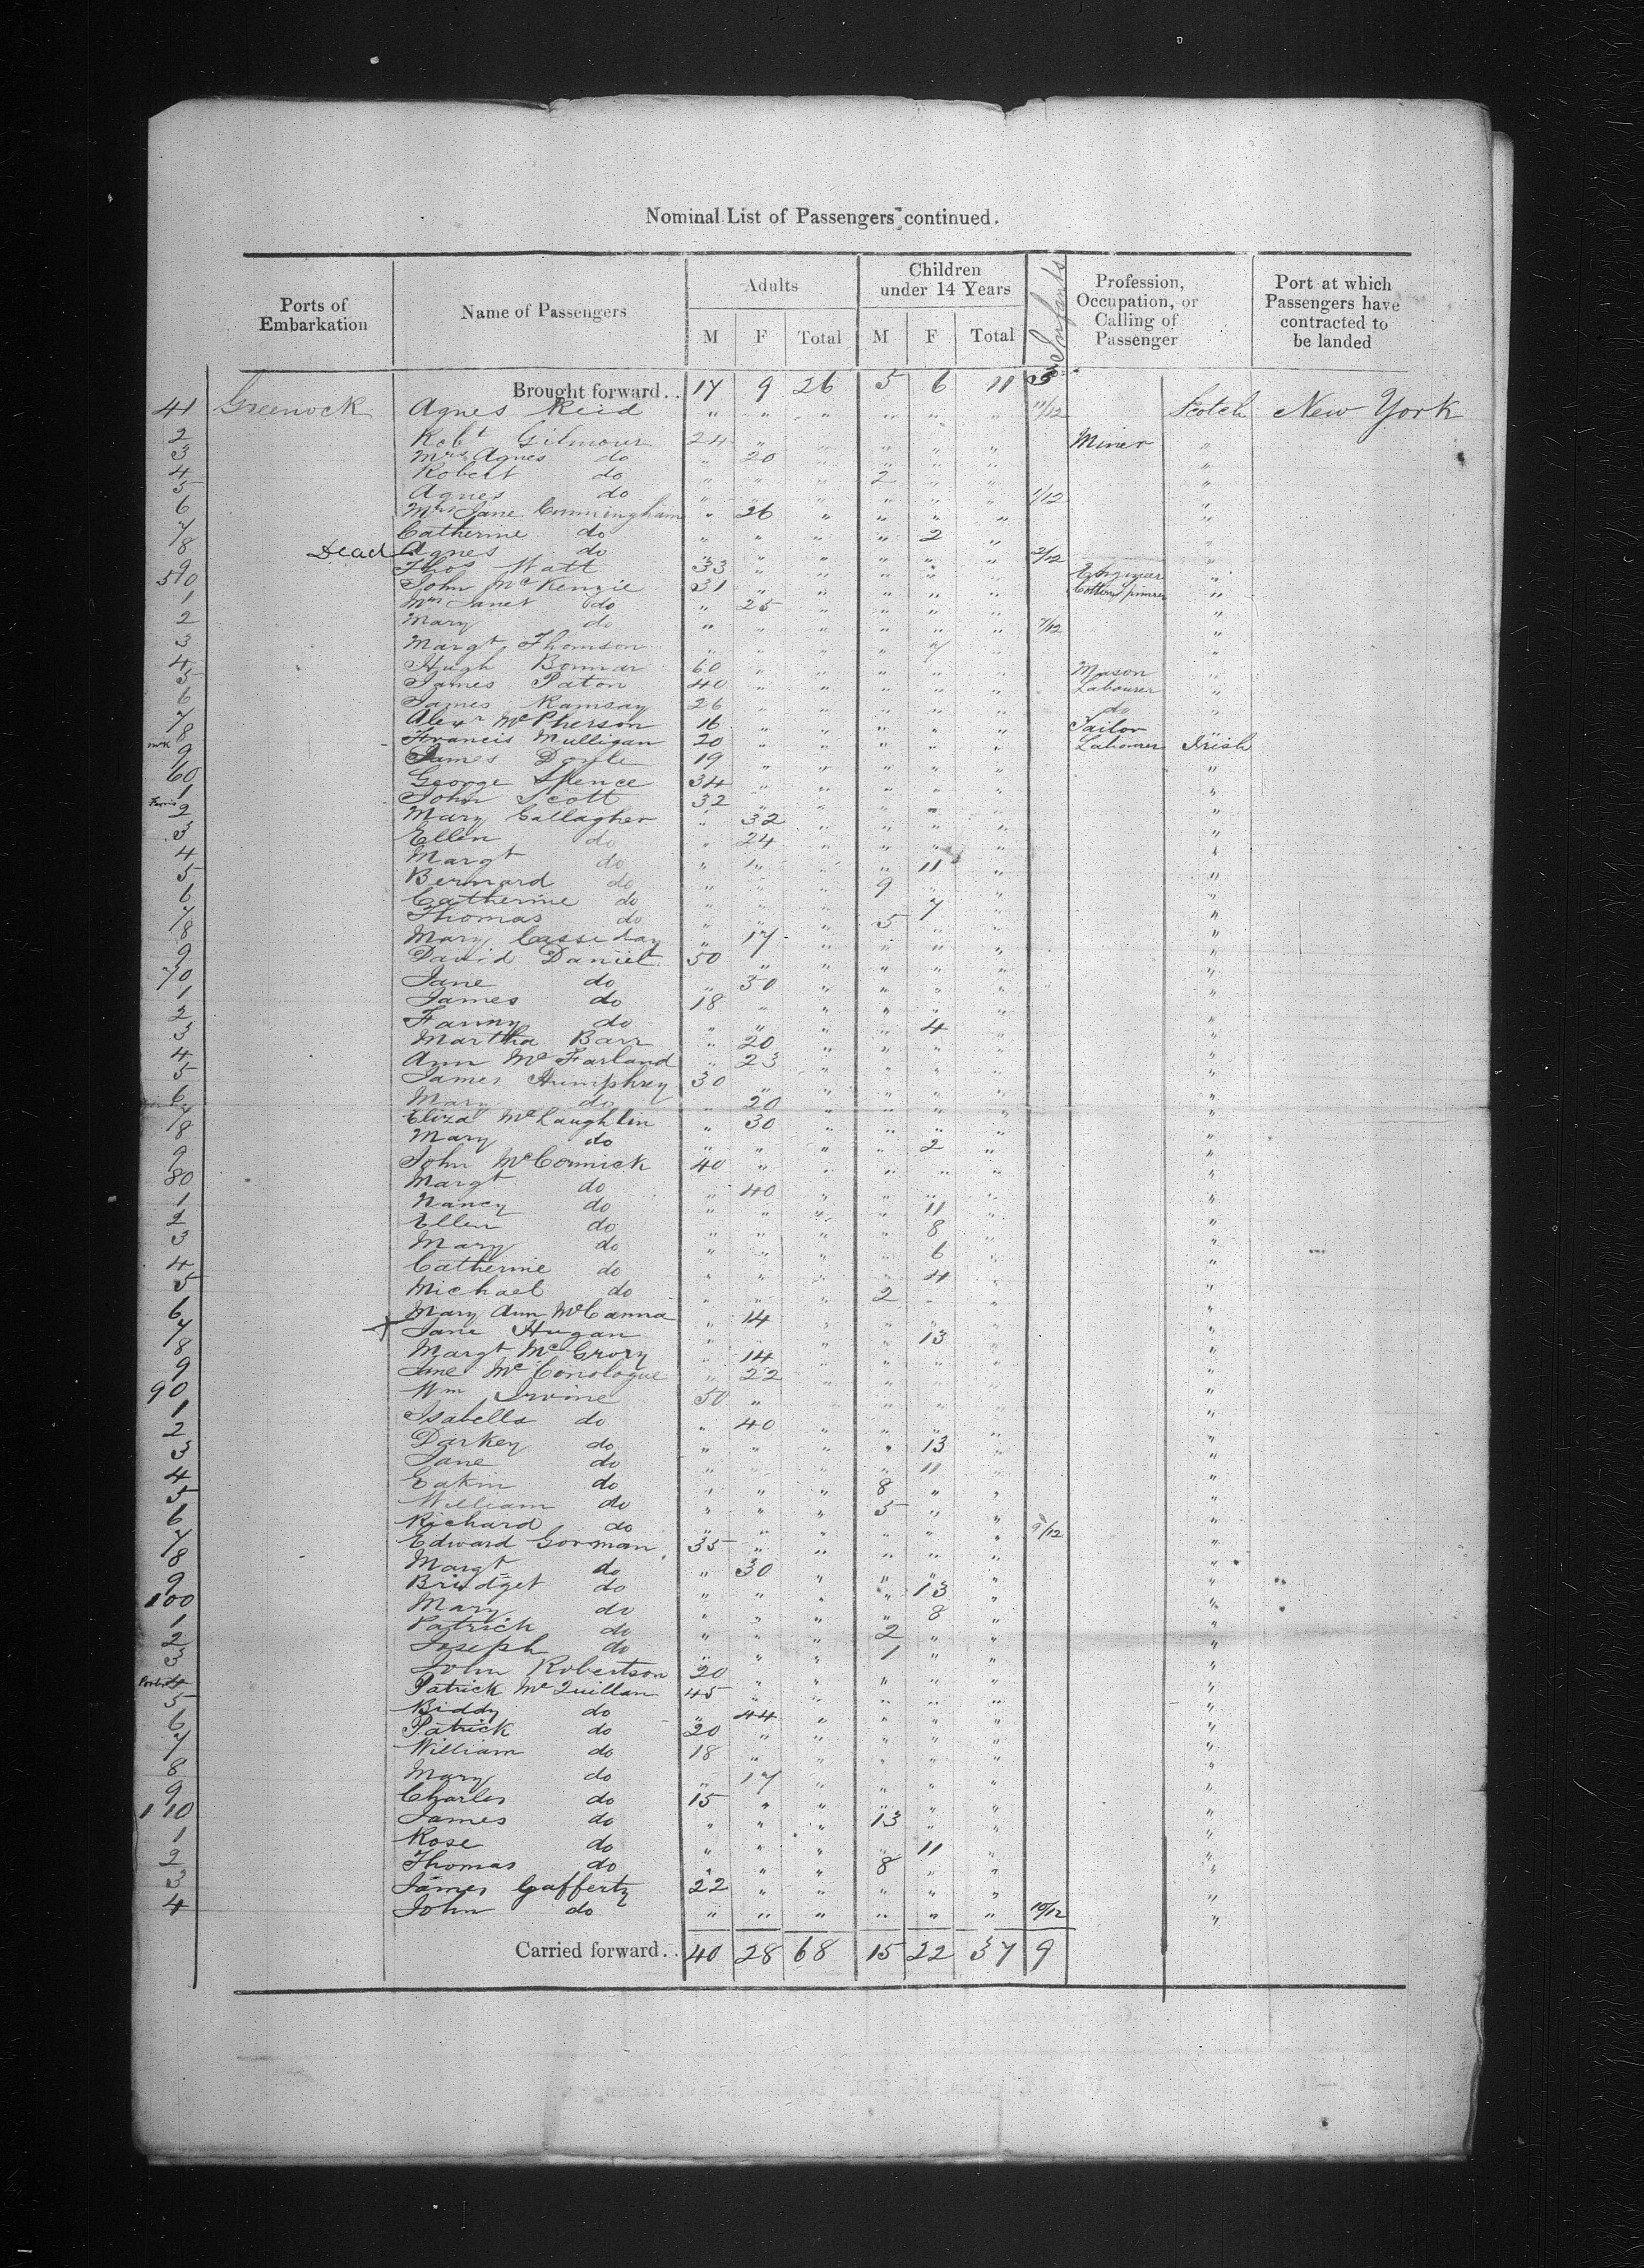 Nominal List of Passengers continued.
Ports of Embarkation Name of Passengers Adults Children under 14 Years Infants Profession, Occupation, or Calling of Passenger Port at which Passengers have contracted to be landed
M F Total M F Total
Brought forward.. 17 9 26 5 6 11 3
41 Greenock Agnes Reid " " " " " " 11/12 Scotch New York
2 Robt Gilmour 24 " " " " " Miner "
3 Mrs Agnes do " 20 " " " " "
4 Robert do " " " 2 " " "
5 Agnes do " " " " " " 1/12 "
6 Mrs Jane Cunningham " 26 " " " " "
7 Catherine do " " " " 2 " "
8 Dead Agnes do " " " " " " 2/12 "
9 Thos Watt 33 " " " " " Engineer "
50 John McKenzie 31 " " " " " Cotton "
1 Mrs Janet do " 25 " " " " "
2 Mary do " " " " " " 7/12 "
3 Margt Thomson " " " " 7 " "
4 Hugh Bonnar 60 " " " " " Mason "
5 James Paton 40 " " " " " Labourer "
6 James Ramsay 26 " " " " " do "
7 Alexr McPherson 16 " " " " " Tailor "
8 Francis Mulligan 20 " " " " " Labourer Irish
9 James Doyle 19 " " " " " "
60 George Spence 34 " " " " " "
1 John Scott 32 " " " " " "
2 Mary Gallagher " 32 " " " " "
3 Ellen do " 24 " " " " "
4 Margt do " " " " 11 " "
5 Bernard do " " " 9 " " "
6 Catherine do " " " " 7 " "
7 Thomas do " " " 5 " " "
8 Mary Cassiday " 17 " " " " "
9 David Daniel 50 " " " " " "
70 Jane do " 30 " " " " "
1 James do 18 " " " " " "
2 Fanny do " " " " 4 " "
3 Martha Barr " 20 " " " " "
4 Ann McFarland " 23 " " " " "
5 James Humphrey 30 " " " " " "
6 Mary do " 20 " " " " "
7 Eliza McLaughlin " 30 " " " " "
8 Mary do " " " " 2 " "
9 John McCormick 40 " " " " " "
80 Margt do " 40 " " " " "
1 Nancy do " " " " 11 " "
2 Ellen do " " " " 8 " "
3 Mary do " " " " 6 " "
4 Catherine do " " " " 4 " "
5 Michael do " " " 2 " " "
6 Mary Ann McCanna " 14 " " " " "
7 Jane Hugan " " " " 13 " "
8 Margt McGrory " 14 " " " " "
9 Jane McConologue " 22 " " " " "
90 Wm Irvine 50 " " " " " "
1 Isabella do " 40 " " " " "
2 Darkey do " " " " 13 " "
3 Jane do " " " " 11 " "
4 Eakin do " " " 8 " " "
5 William do " " " 5 " " "
6 Richard do " " " " " " 9/12 "
7 Edward Gorman 35 " " " " " "
8 Margt do " 30 " " " " "
9 Bridget do " " " " 13 " "
100 Mary do " " " " 8 " "
1 Patrick do " " " 2 " " "
2 Joseph do " " " 1 " " "
3 John Robertson 20 " " " " " "
4 Patrick McQuillan 45 " " " " " "
5 Biddy do " 44 " " " " "
6 Patrick do 20 " " " " " "
7 William do 18 " " " " " "
8 Mary do " 17 " " " " "
9 Charles do 15 " " " " " "
110 James do " " " 13 " " "
1 Rose do " " " " 11 " "
2 Thomas do " " " 8 " " "
3 James Gafferty 22 " " " " " "
4 John do " " " " " " 10/12 "
Carried forward.. 40 28 68 15 22 37 9